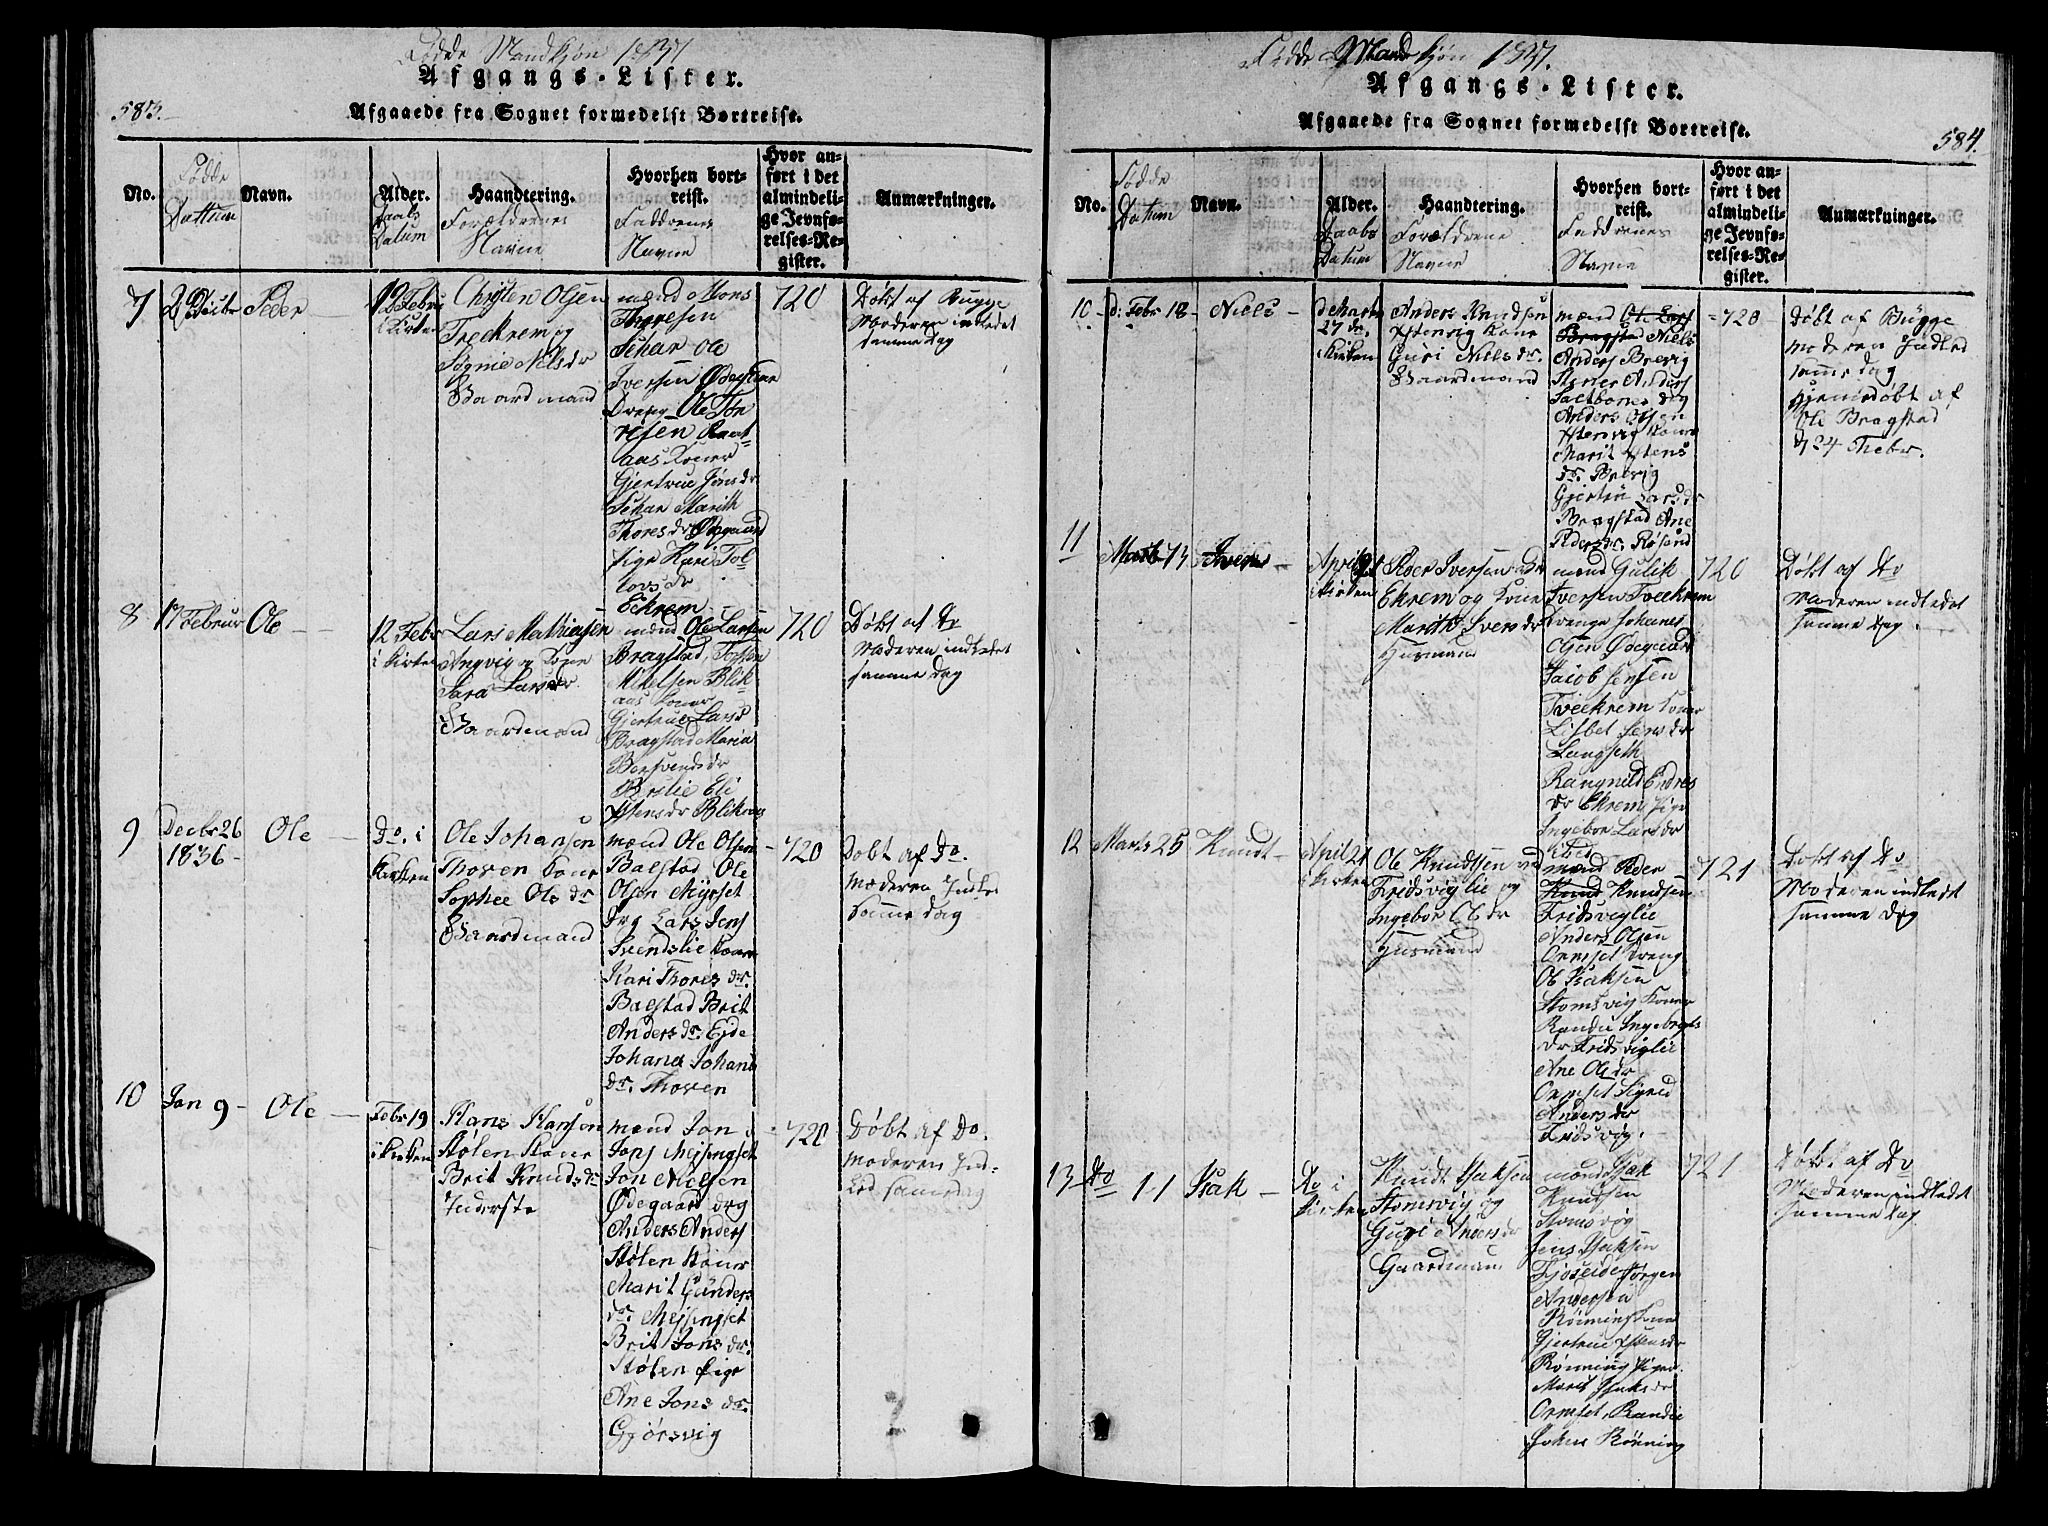 Fødde Mandkjøn 1837
583.
Afgangs-Lister.
Afgaaede fra Sognet formedelst Bortreise.
No.
Fødde Dattum
Navn.
Alder.
Daabs
Datum
Haandtering.
Forældrenes
Navne
Hvorhen bort-
reist.
Faddrenes
Navne
Hvor an-
ført i det
almindeli-
ge Jevnfø-
relses-Re-
gister.
Anmærkninger.
7
Peder
12 Febru
i Kirken
Christen Olsen
Treekrem og
Nelsdr
Gaardmand
mænd Mons
Thoresen
Sehar Ole
Iversen
Dreng Ole Tor
Koner
Gjertrue Jonsdr
Sehar Marith
Thoresdr Ødegaard
Pige Kari Tol
lovsdr
Eckrem
720
Døbt af Bugge
Moderen indledet
samme Dag
8
17 Februr
Ole
12 Febr
i Kirken
Lars Mathiasen
Angvig og Kone
Sara Larsdr
Gaardmand
mænd Ole Larsen
Bragstad, Tosten
Mikelsen Blik
aas Koner
Gjertrue Lars
Bragstad Maria
Bersvendsdr
Berslie Eli
Ystensdr Blikaas
720
Døbt af Do
Moderen indledet
samme Dag
9
Decbr 26
1836
Ole
Do. i
Kirken
Ole Johansen
Thoven Kone
Sophee Ole dr
Gaardmand
mænd Ole Olsen
Balstad Ole
Olsen Myrset
Drg Lars Jens
Svendslie Koner
Kari Thores dr.
Balstad Brit
Anders dr. Eide
Johana Johans
dr. Thoven
720
Døbt af Do.
Moderen Indle
Samme dag
10
Jan 9
Ole
Febr 19
i Kirken
Hans Hanson
Stølen Kone
Brit Knuds dr
Inderste
mænd Jon
Jons Meisingset
Jon Nielsen
Ødegaard drg
Anders Anders
Stølen Koner
Marit Gunders
dr. Mejsingset
Brit Jons dr.
Stølen Pige
Ane Jons dr.
Gjørsvig
720
Døbt af Do.
Moderen Ind-
led samedag
Fødde Mandkjøn 1837.
Afgangs-Lister.
Afgaaede fra Sognet formedelst Bortreise.
584.
No.
Fødde
Datum
Navn.
Alder.
Daabs
Datum
Haandtering.
Forældrene
Navne
Hvorhen bort-
reist.
Faddrenes
Navne
Hvor an-
ført i det
almindeli-
ge Jevnfø-
relses-Re-
gister.
Anmærkninger.
10
d. Febr 18
Niels
27 do.
i Kirken
Anders Knudsen
Ystenvig Kone
Guri Niels dr.
Gaardmand
mænd Ole
Bragstad Niels
Anders Brevig
Anders
Saltbones drg
Anders Olsen
Ystenvig Koner
Marit Ystens
dr. Brevig
Gjertru Lars dr
Bragstad Ane
Peders dr. Røsand
720
Døbt af Bügge
moderen Indled
samme dag
Hjemedøbt af
Ole Bragstad
d 24 Febr.
11
Marts 13
Iver
April 21
i Kirken
Peder Iversen
Ekrem og Kone
Marith Iversdr
Husmand
mænd Gulik
Iversen Tveekrem
Drenge Johanes
Olsen Ødegaard
Jacob Jensen
Tveekrem Koner
Lisbet Jensdr
Langseth
Rangnild Endres
dr Ekrem Pige
Ingebor Larsdr
720
Døbt af Do
Moderen indledet
samme Dag.
12
Marts 25
Knudt
April 21
i Kirken
Ole Knudsen ved
Fridsviglie og
Ingebor Olsdr
Husmand
mænd Peder
Knud Knudsen
Fridsviglie
Anders Olsen
Ormset Dreng
Ole Isaksen
Stomsvig Koner
Randie Ingebregts
dr Fridsviglie
Ane Olsdr
Ormset Sigrid
Andersdr
Fridsvig.
721
Døbt af Do
Moderen indledt
samme Dag
13
Do 11
Isak
Do i
Kirken
Knudt Isaksen
Stomsvig og
Guri Andersdr
Gaardmand
mænd Isak
Knudsen
Stomsvig
Jens Isaksen
Fjøseide Jørgen
Andersen
Rønning Kone
Gjertrue Ystensdr
Rønning Piger
Marit Isaksdr
Ormset, Randie
Johns Rønning
721
Døbt af Do
Moderen indledt
samme Dag